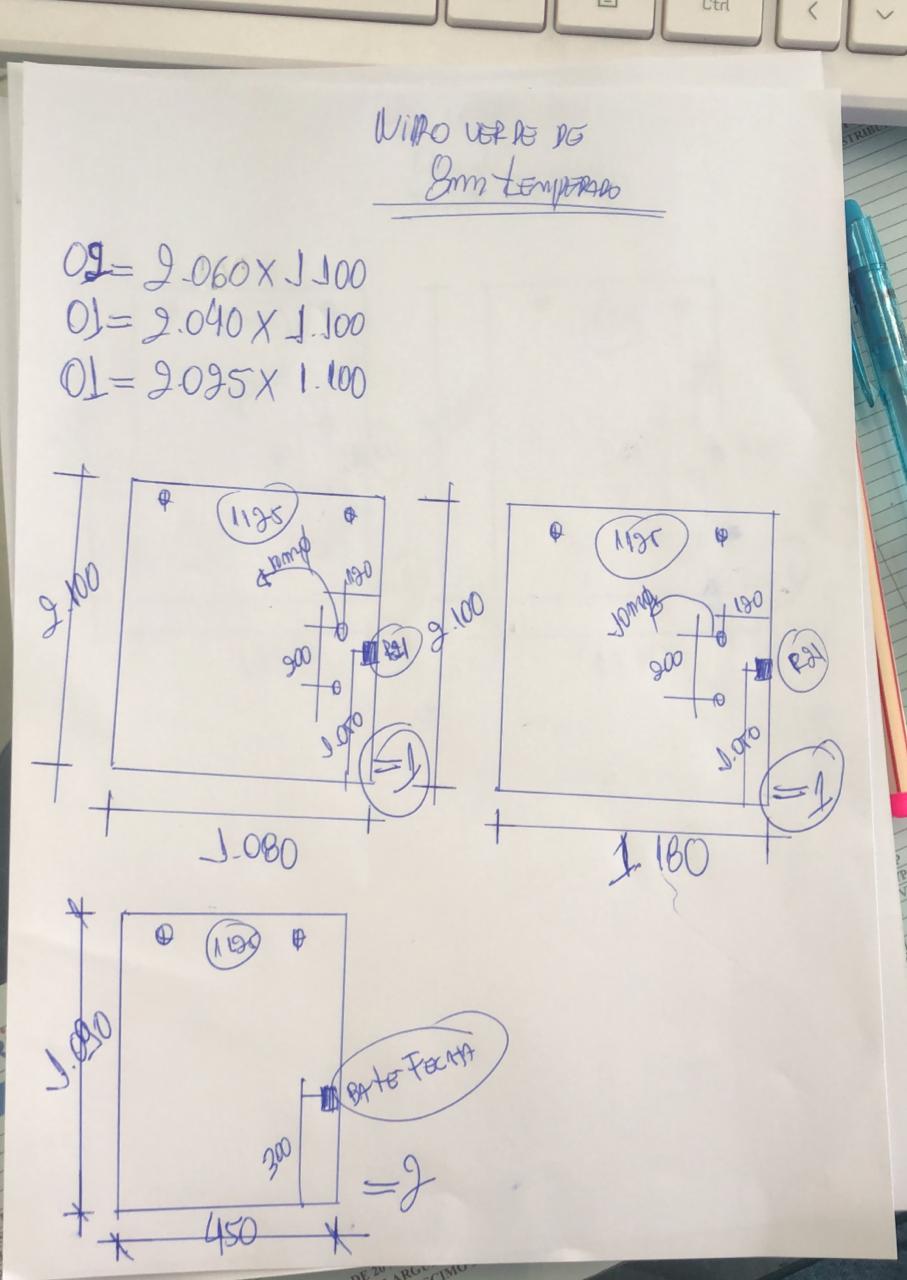 Ctrl
VIDRO VERDE DE
8mm TEMPERADO
02 = 2.060 X 1.100
01 = 2.040 X 1.100
01 = 2025 X 1.100
1125
10mm
120
2.100
200
R21
1.050
= 1
1.080
1125
10mm
120
2.100
200
R21
1.050
= 1
1.180
1125
BATE FECHA
300
= 2
450